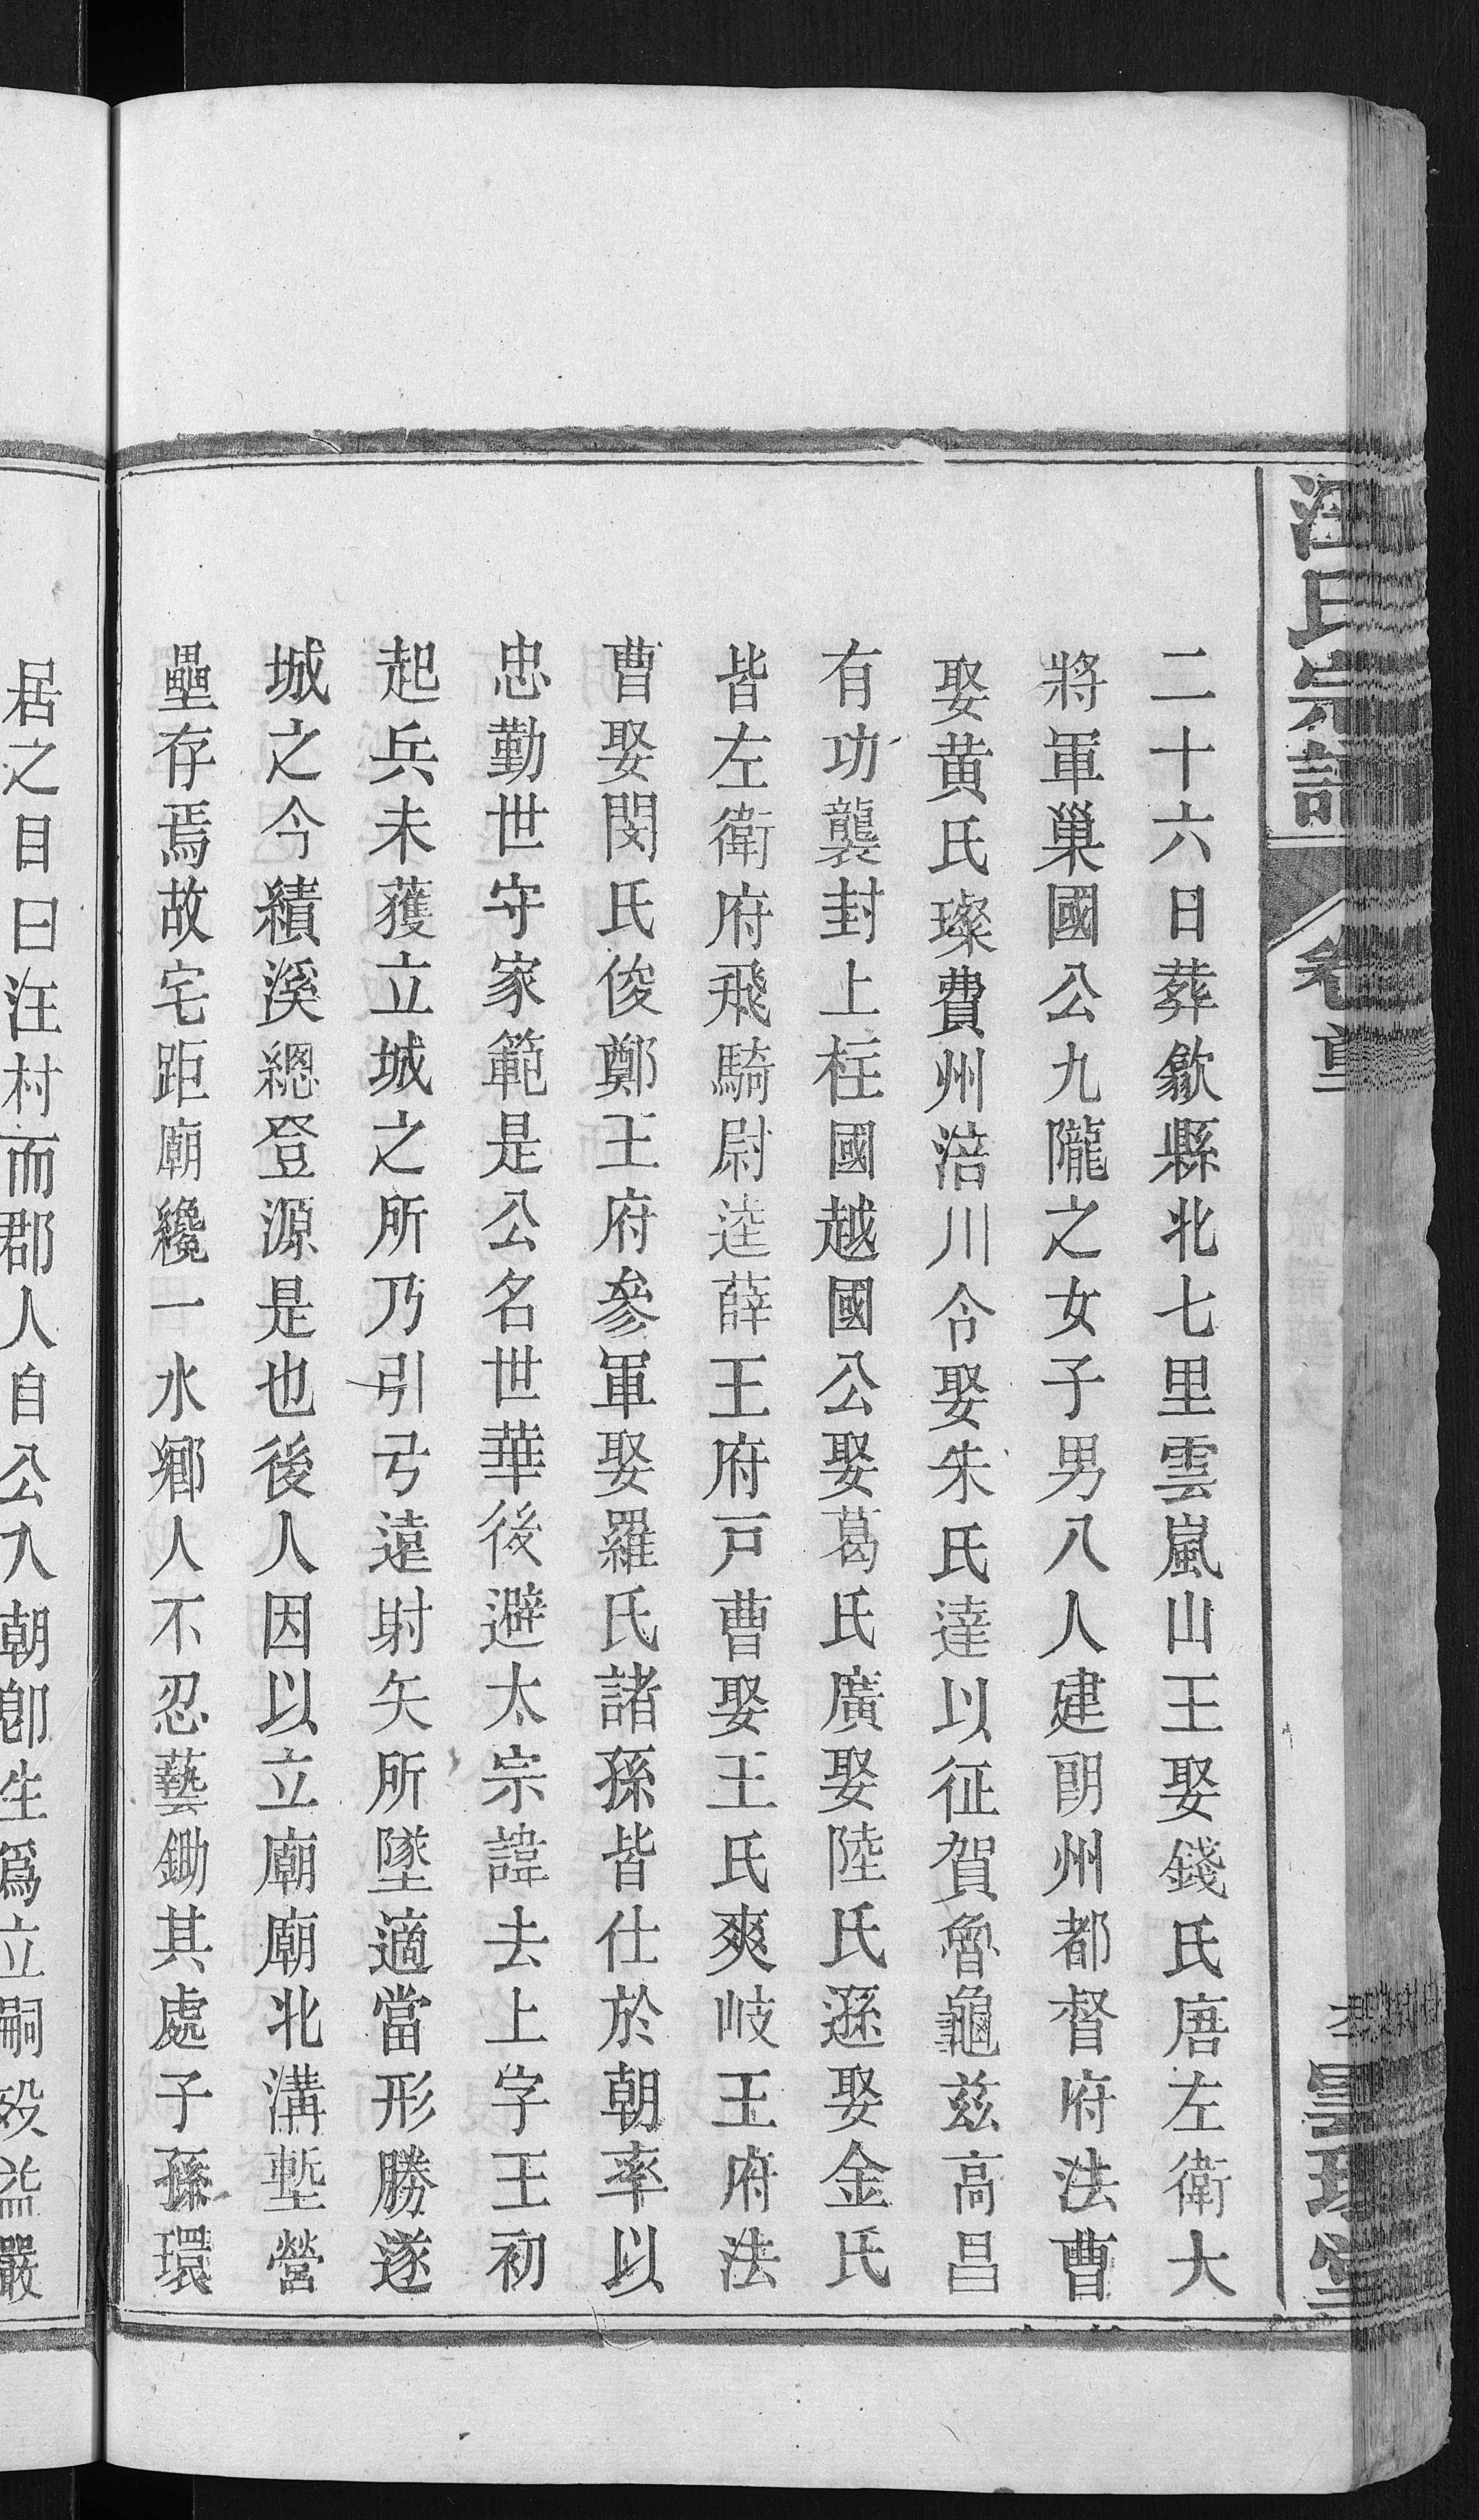 汪氏宗譜
二十六日葬歙縣北七里雲嵐山王娶錢氏唐左衛大
將軍巢國公九隴之女子男八人建朗州都督府法曹
娶黃氏璨費州涪川令娶朱氏達以征賀魯龜玆高昌
有功襲封上柱國越國公娶葛氏廣娶陸氏遜娶金氏
皆左衛府飛騎尉逵薛王府戸曹娶王氏爽岐王府法
曹娶閔氏俊鄭王府參軍娶羅氏諸孫皆仕於朝率以
忠勤世守家範是公名世華後避太宗諱去上字王初
起兵未獲立城之所乃引弓遠射矢所墜適當形勝遂
城之今績溪緫登源是也後人因以立廟廟北溝塹營
壘存焉故宅距廟纔一水鄉人不忍藝鋤其處子孫環
居之目曰汪村而郡人自公入朝卽生爲立嗣歿益嚴